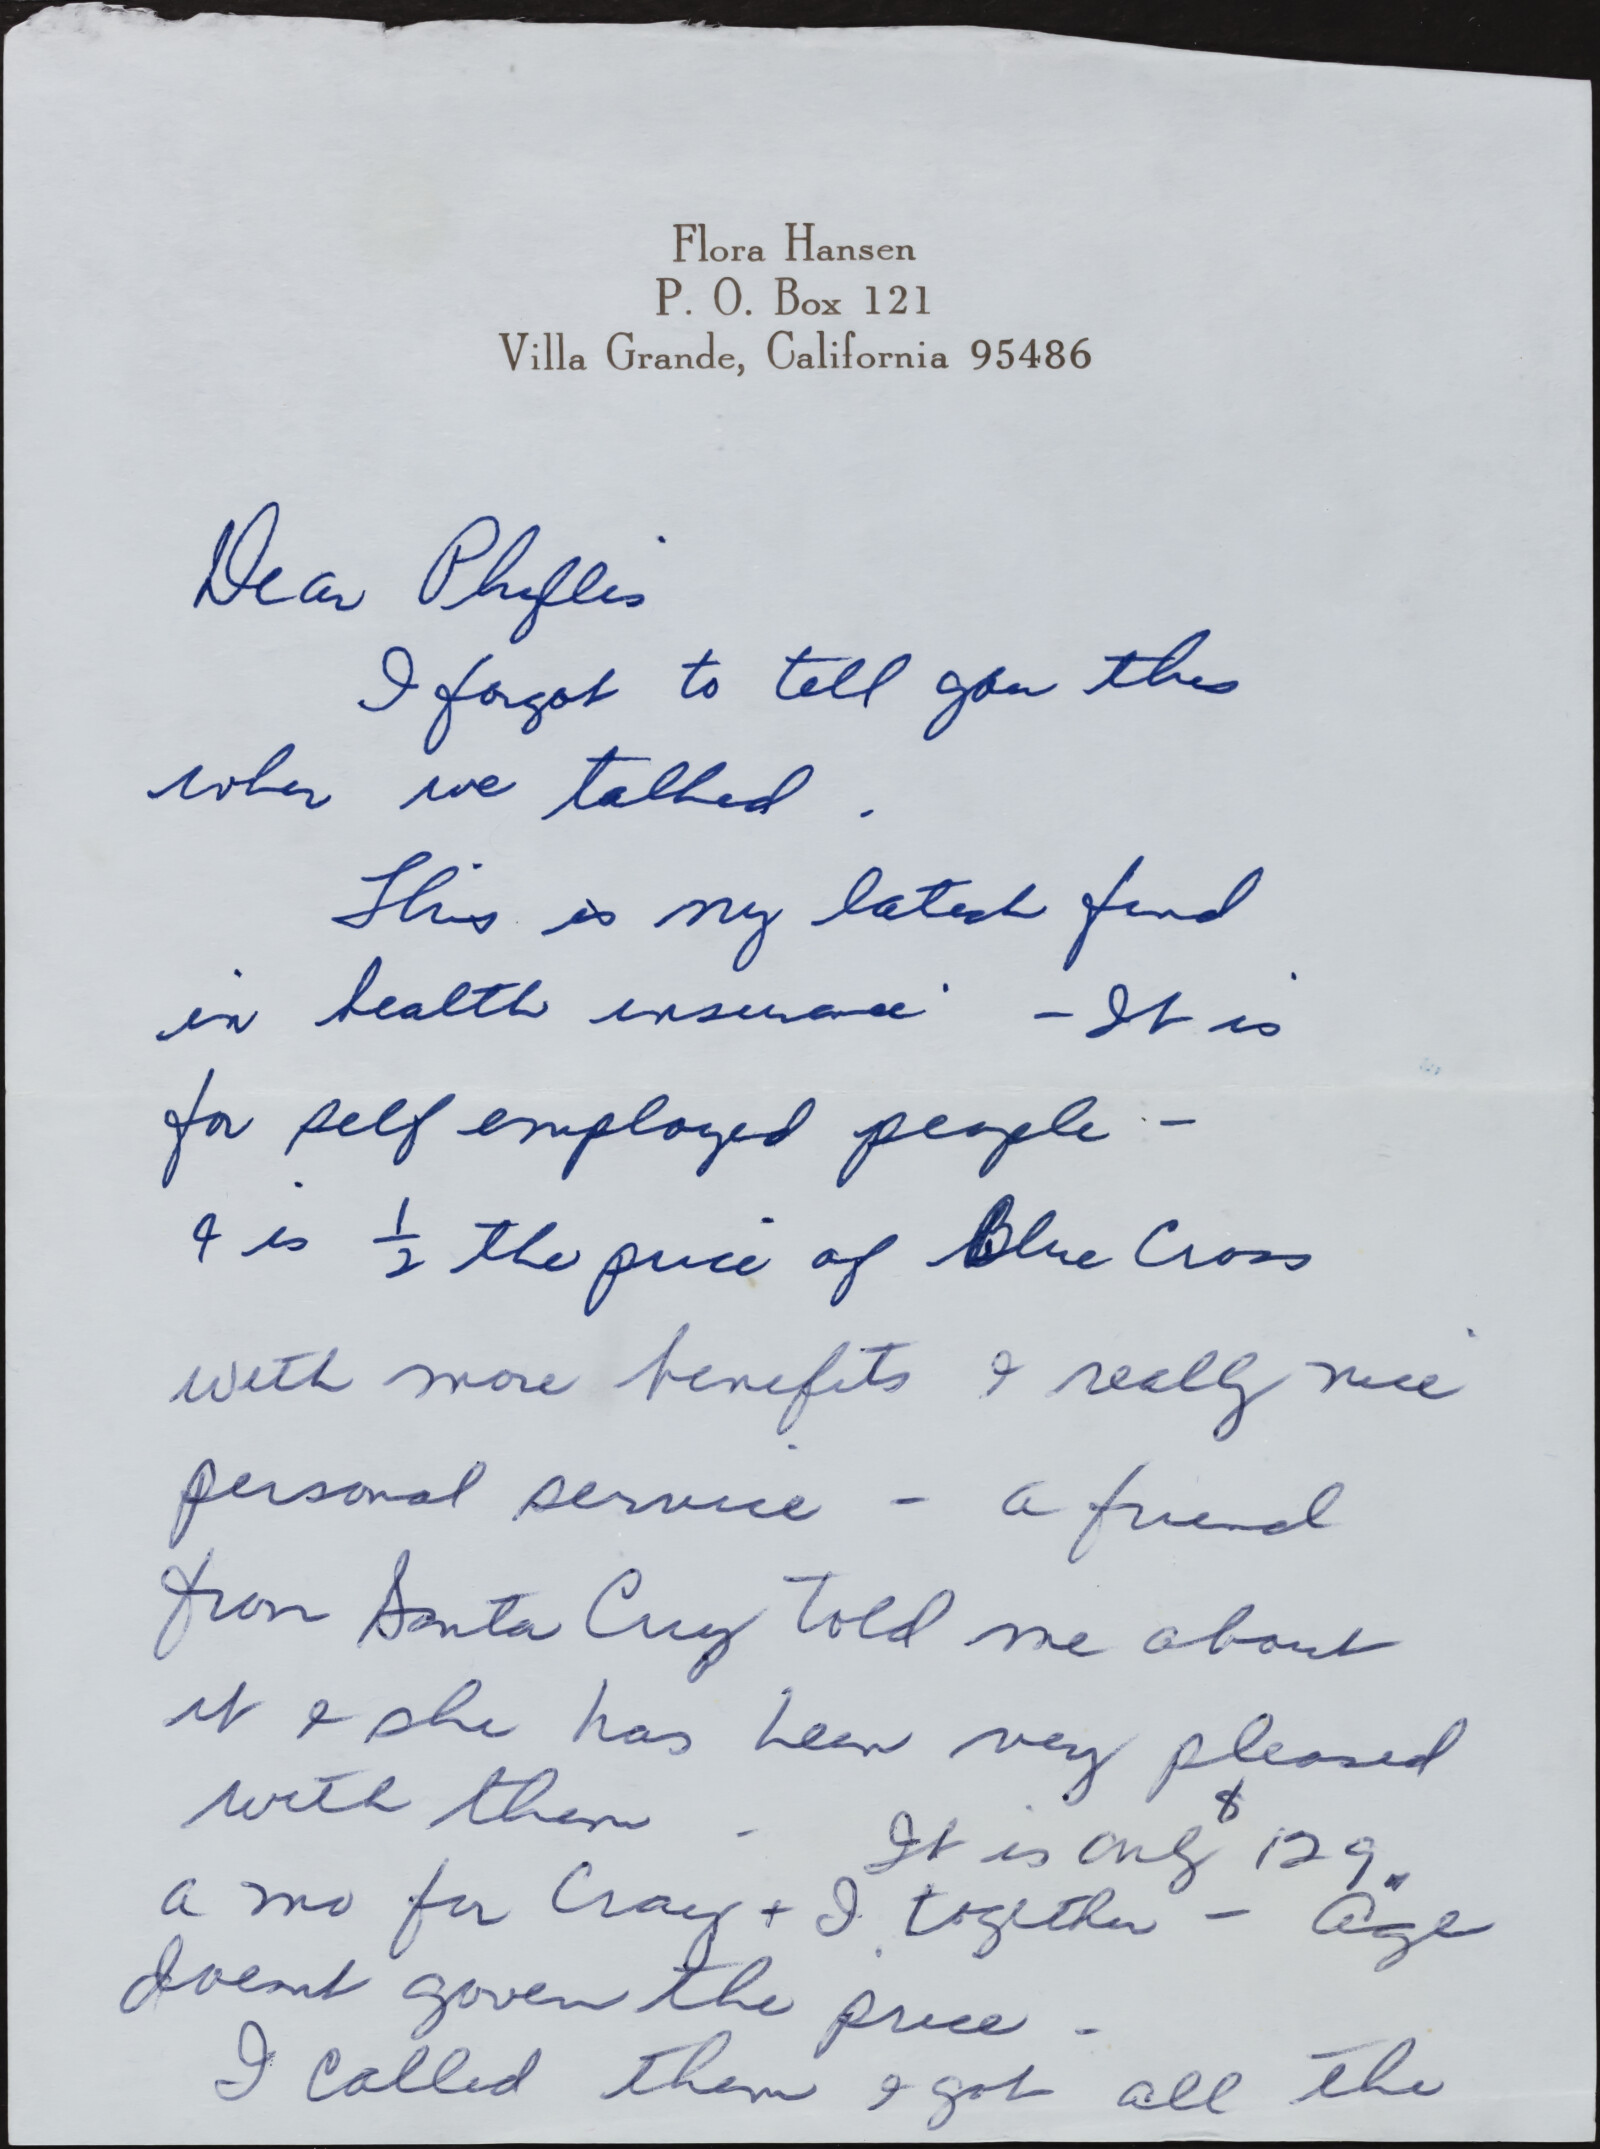 Flora Hansen
P. O. Box 121
Villa Grande, California 95486
Dear Phyllis
I forgot to tell you this
when we talked.
This is my latest find
in health insurance - It is
for self employed people -
& is ½ the price of Blue Cross
with more benefits & really nice
personal service - a friend
from Santa Cruz told me about
it & she has been very pleased
with them. It is only $129.
a mo for Craig + I together - Age
doesnt govern the price -
I called them & got all the